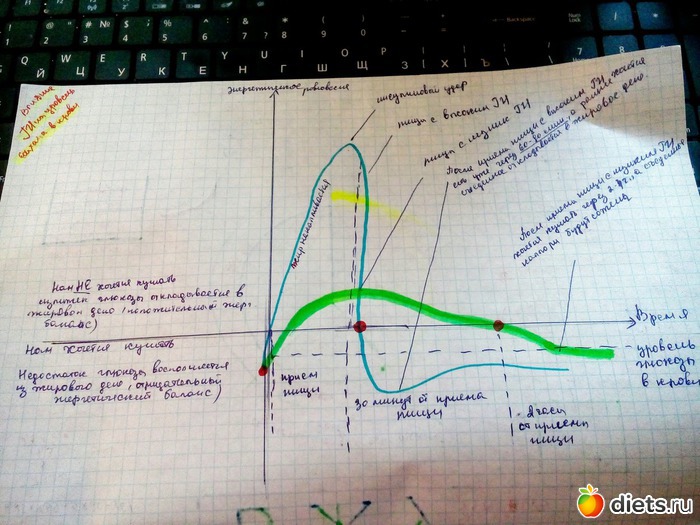 Влияние
ГИ на уровень
сахара в крови
энергетическое равновесие
инсулиновый удар
пища с высоким ГИ
пища с низким ГИ
После приема пищи с высоким ГИ хочется
есть уже через 30-60 минут, а раннее
съеденное откладывается в жировое депо.
После приема пищи с низким ГИ
хочется кушать через 2
калории будут сожжены
жир накапливается
Нам НЕ хочется кушать
глюкозы откладывается в
жировое депо (положительный энерг.
баланс)
Нам хочется кушать
Недостаток глюкозы восполняется
из жирового депо (отрицательный
энергетический баланс)
прием
пищи
30 минут от приема
пищи
2 часа
от приема
пищи
Время
уровень
глюкозы
в крови
diets.ru